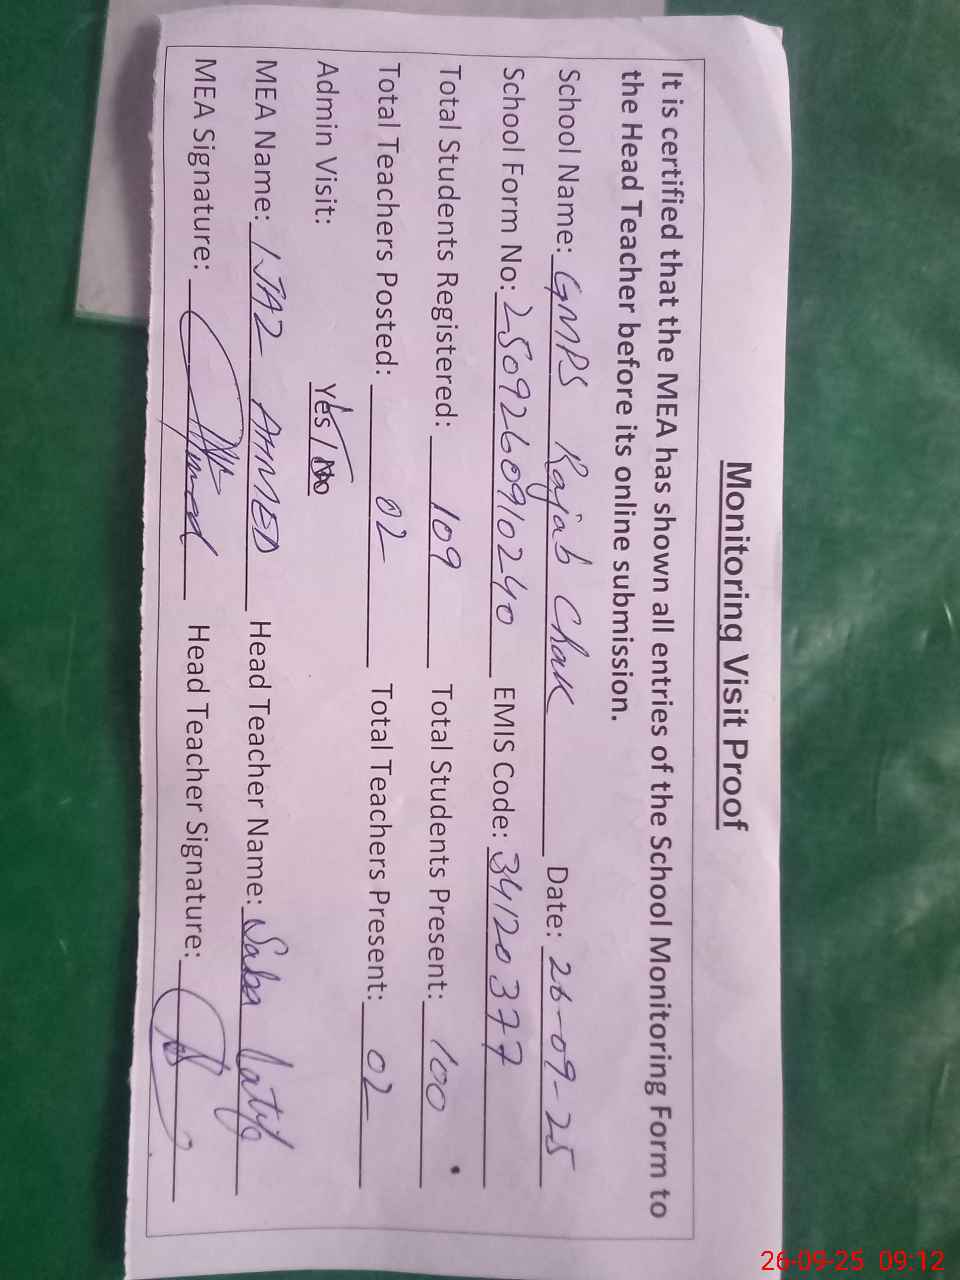 Monitoring Visit Proof
It is certified that the MEA has shown all entries of the School Monitoring Form to
the Head Teacher before its online submission.
School Name: GMPS Rajab Chak Date: 26-09-25
School Form No: 2509260910240 EMIS Code: 34120377
Total Students Registered: 109 Total Students Present: 100
Total Teachers Posted: 02 Total Teachers Present: 02
Admin Visit: Yes / No
MEA Name: IJAZ AHMED Head Teacher Name: Saba Latif
MEA Signature: Ahmed Head Teacher Signature:
26-09-25 09:12